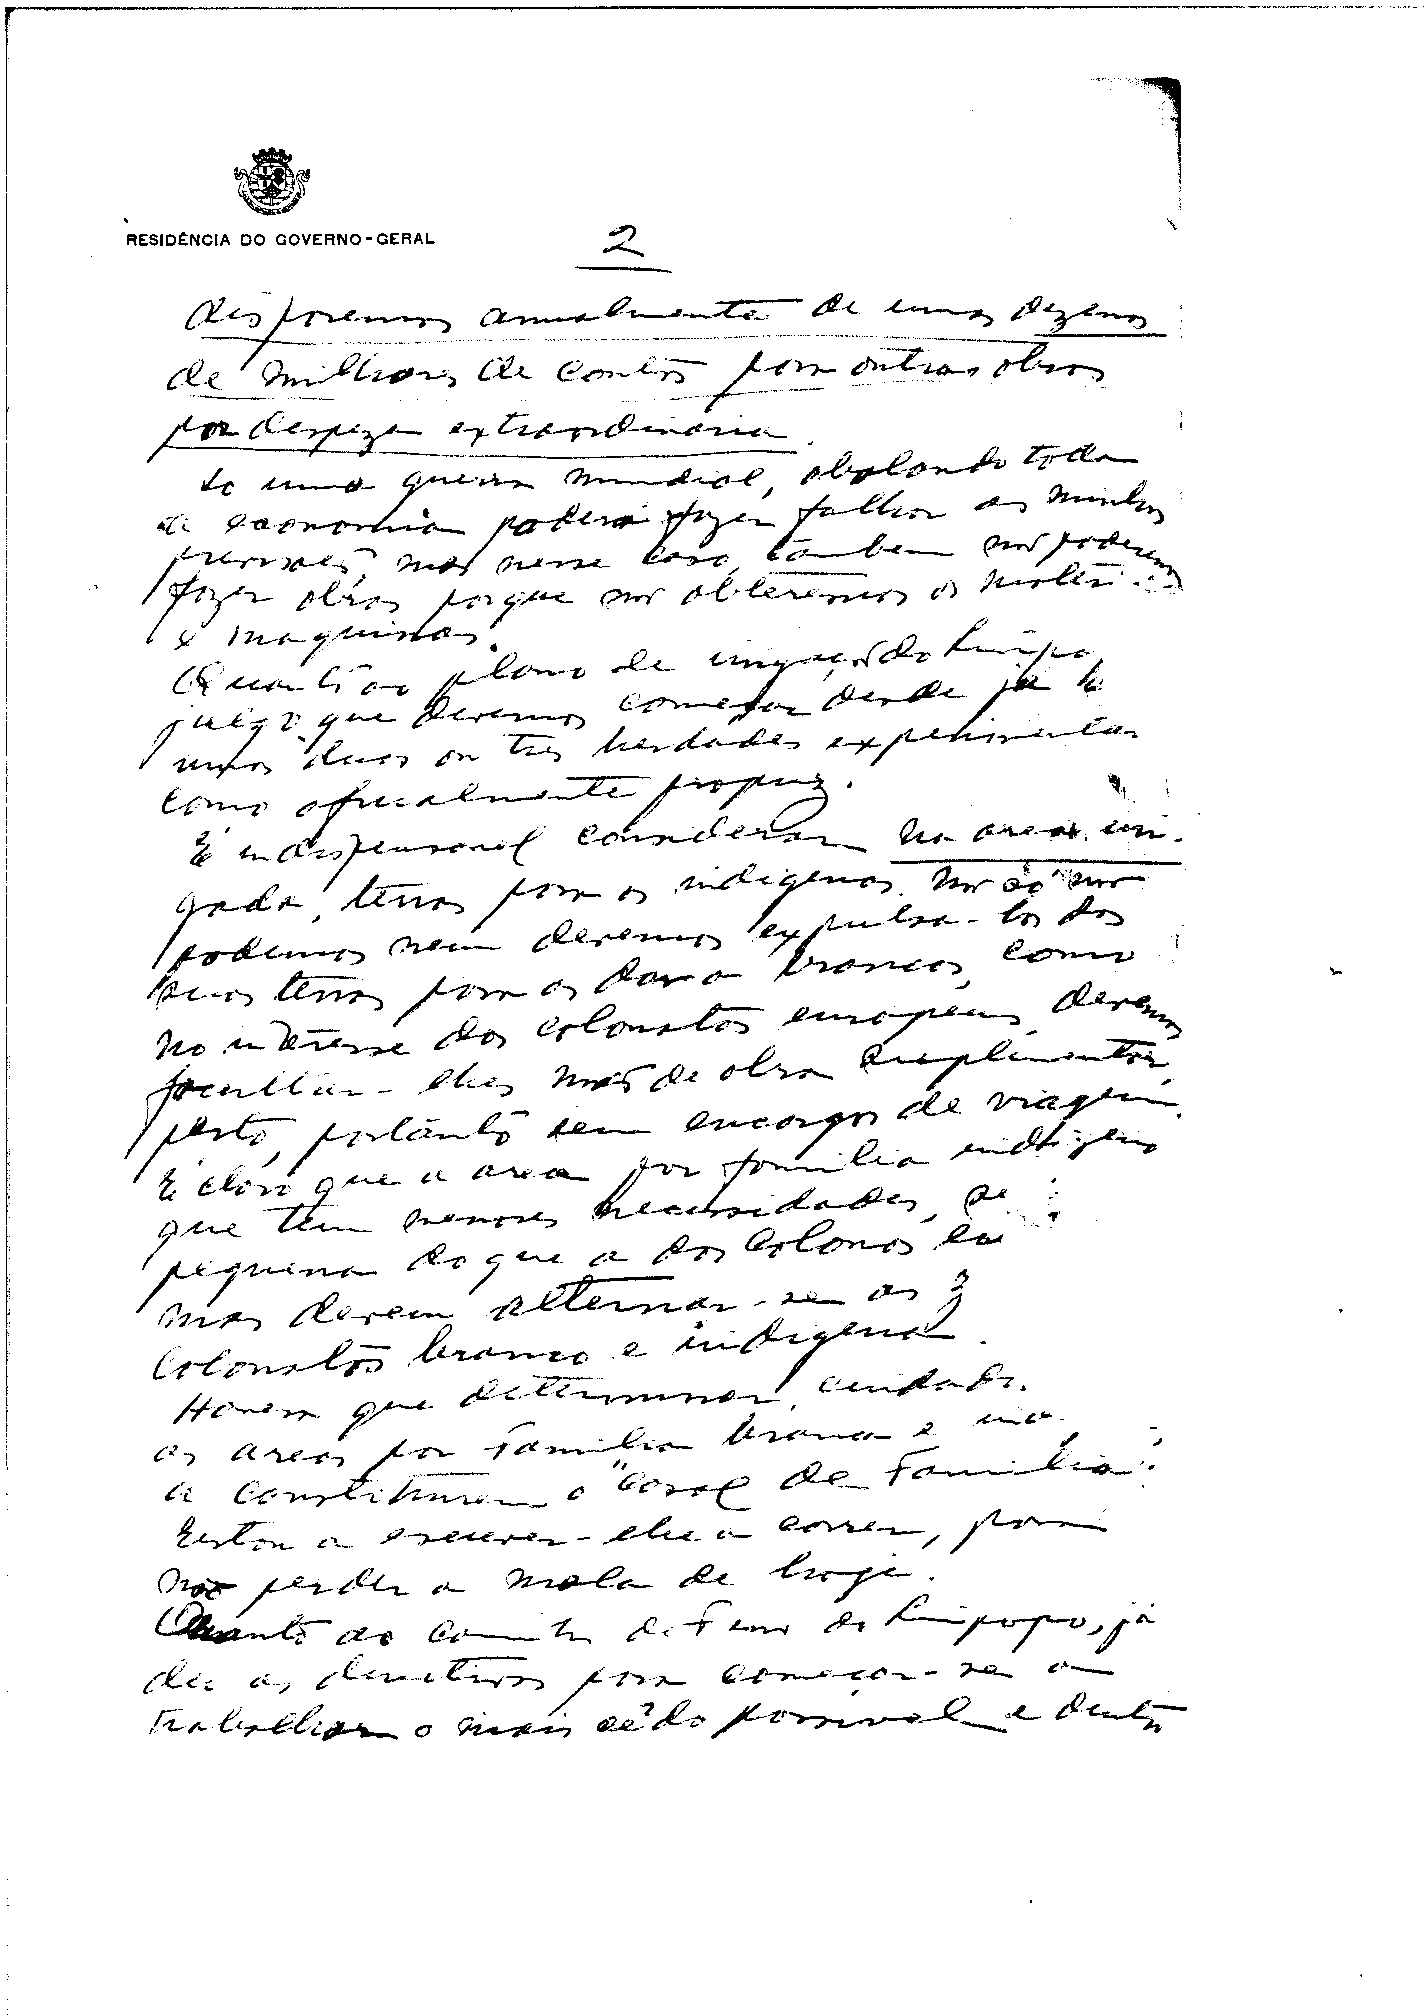 RESIDÊNCIA DO GOVERNO-GERAL
2
disporemos anualmente de umas dezenas
de milhares de contos para outras obras
por despeza extraordinaria.
Só uma guerra mundial, abalando toda
a economia poderá fazer falhar as minhas
previsões, mas nesse caso, tambem não poderemos
fazer obras porque não obteremos os
e maquinas.
Quanto ao plano de irrigação do Limpopo,
julgo que devemos começar desde já
umas duas ou tres herdades experimentaes
como oficialmente propuz.
É indispensavel considerar na area irri-
gada, terras para os indigenas. Não só não
podemos nem devemos expulsa-los das
suas terras para as dar a brancos, como
no interesse dos colonatos europeus, devemos
facultar-lhes mão de obra suplementar,
perto, portanto sem encargos de viagem.
É claro que a area por familia indigena
que tem menores necessidades, se
pequena do que a dos colonos
mas devem alternar-se os
colonatos branco e indigena.
Haverá que determinar, cuidado.
as areas por familia branca e
a constituirem o "casal de familia".
Estou a escrever-lhe a correr, para
não perder a mala de hoje.
Quanto ao caminho de ferro do Limpopo, já
dei as directivas para começar-se a
trabalhar o mais cêdo possivel e dentro